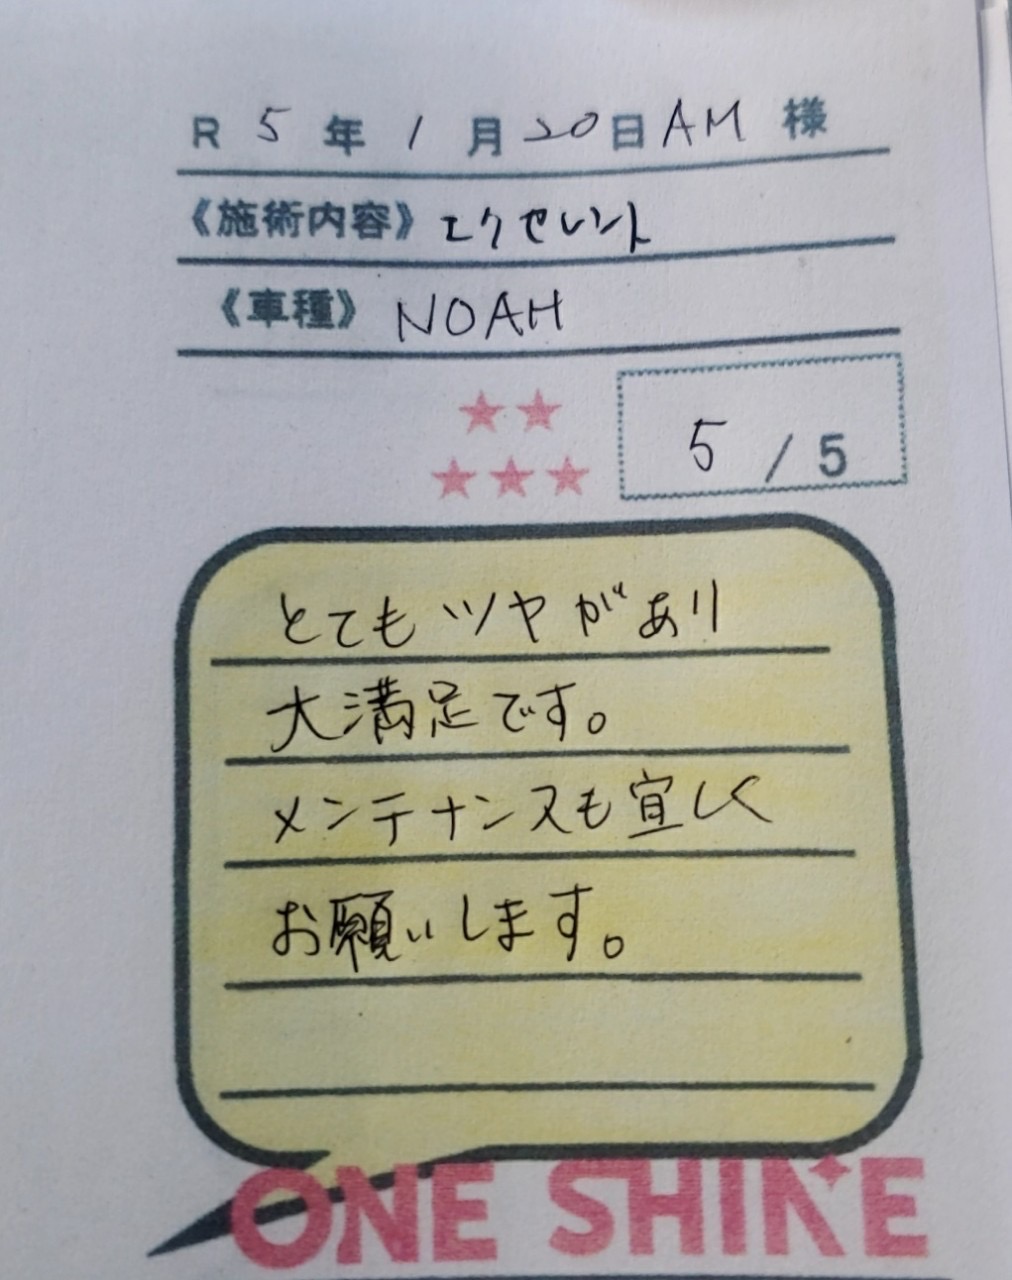 R 5 年 1 月 20 日 AM 様
《施術内容》エクセレント
《車種》NOAH
5 / 5
とてもツヤがあり
大満足です。
メンテナンスも宜しく
お願いします。
ONE SHINE